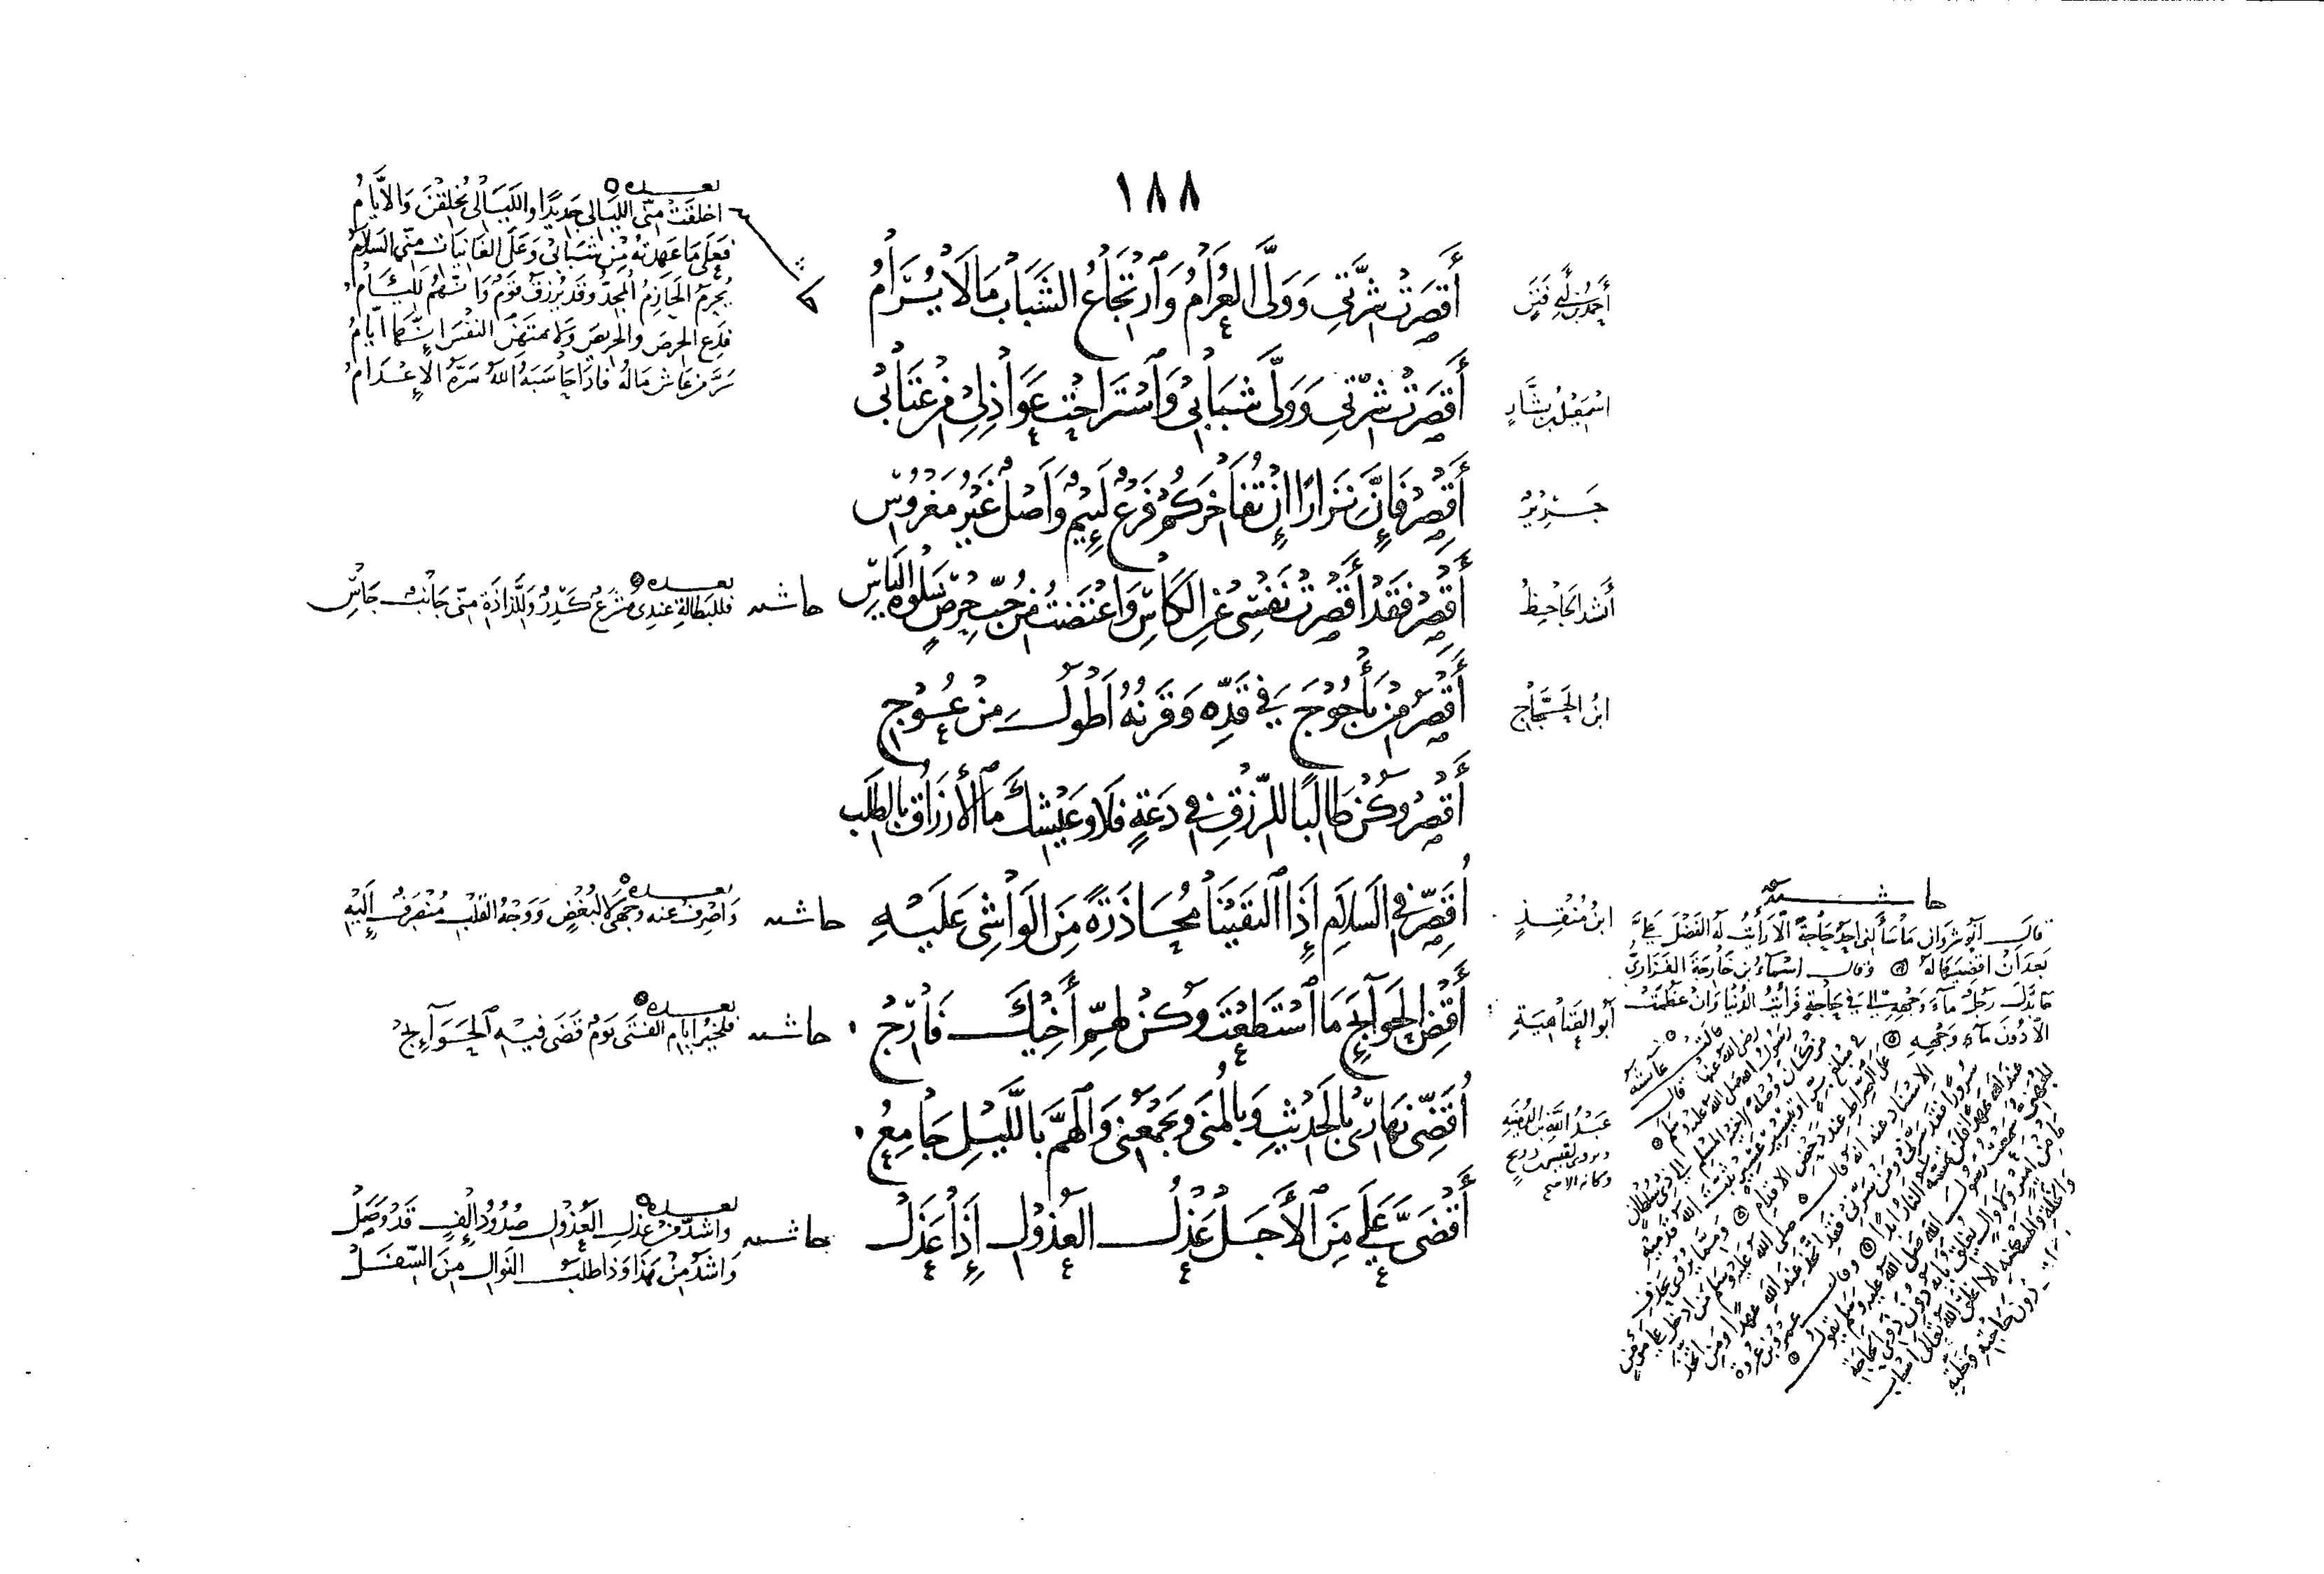 ١٨٨
أَحْمَدُ بْنُ أَبِي فَنَنٍ
أَقْصَرَتْ شِرَّتِي وَوَلَّى العُرَامُ وَارْتِجَاعُ الشَّبَابِ مَا لَا يُرَامُ
بعده
اخلقت منّي الليالي جديدًا والليالي يُخلقن والأيّامُ
فعلى ما عهدته من شبابي وعلى الغانيات منّي السلامُ
يُحرم الحازم المجدّ وقد يُرزق قوم وانهم للئامُ
فدع الحرص والحريص ولا تمتهن النفس انّها ايّامُ
سرّ من عاش ماله فاذا حاسبه الله سرّه الإعدامُ
اسمعيل بن بشّارٍ
أَقْصَرَتْ شِرَّتِي وَوَلَّى شَبَابِي وَاسْتَرَاحَتْ عَوَاذِلِي مِنْ عِتَابِي
جَرِيرٌ
أَقْصِرْ فَإِنَّ نِزَارًا إِنْ تُفَاخِرَكُمْ فَرْعٌ لَئِيمٌ وَأَصْلٌ غَيْرُ مَغْرُوسِ
أنشد الجاحظ
أَقْصِرْ فَقَدْ أَقْصَرَتْ نَفْسِي عَنِ الكَاسِ وَاعْتَضْتُ مِنْ حُبِّ حِرْصٍ سَلْوَةَ اليَاسِ
حاشه بعده
فللبطالة عندي مشرع كدر وللذاذة منّي جانب جاسِ
ابن الحجّاج
أَقْصَرُ مِنْ يَأْجُوجَ فِي قَدِّهِ وَقَرْنُهُ أَطْوَلُ مِنْ عُوجِ
أَقْصِرْ وَكُنْ طَالِبًا لِلرِّزْقِ فِي دَعَةٍ فَلَا وَعَيْشِكَ مَا الأَرْزَاقُ بِالطَّلَبِ
ابن منقذٍ
أُقَصِّرُ فِي السَّلَامِ إِذَا التَقَيْنَا مُحَاذَرَةً مِنَ الوَاشِي عَلَيْهِ
حاشه بعده
واصرف عنه وجهي لا لبغضٍ ووجه القلب منصرف إليهِ
أبو العتاهية
أَقْضِ الحَوَائِجَ مَا اسْتَطَعْتَ وَكُنْ لِهَمِّ أَخِيكَ فَارِجْ
حاشه بعده
فلخير ايام الفتى يوم قضى فيه الحوائج
عبد الله بن الدمينه
ويروى لقيس بن ذريح
وكانه الاصح
أُقَضِّي نَهَارِي بِالحَدِيثِ وَبِالمُنَى وَيَجْمَعُنِي وَالهَمَّ بِاللَّيْلِ جَامِعُ
أَقْضَى عَلَيَّ مِنَ الأَجَلْ عَذْلُ العَذُولِ إِذَا عَذَلْ
حاشه بعده
واشدّ من عذل العذول صدود إلفٍ قد وصلْ
واشدّ من هذا وذا طلب النوال من السّفلْ
حاشية
قال انوشروان ما سألني احد حاجةً الّا رأيت له الفضل عليّ
بعد ان اقضيها له وقال اسماء بن خارجة الفزاريّ
ما بذل رجل ماء وجهه اليّ في حاجةٍ فرأيت الدنيا وان عظمت
الّا دون ماء وجهه
قالت عائشة
رضي الله عنها قال
رسول الله صلى الله عليه وسلم
من كان وصلة لأخيه المسلم الى ذي سلطان
في مبلغ برّ او تيسير عسير ثبّت الله قدميه
على الصراط عند دحض الاقدام وممّا يروى بحذف
الاسناد عنه انه قال صلى الله عليه وسلم من ادخل على مؤمن
سرورًا فقد سرّني ومن سرّني فقد اتّخذ عند الله عهدًا ومن اتّخذ
عند الله عهدًا فلن تمسّه النار ابدًا وقال عمرو بن مرة
للجهني سمعت رسول الله صلى الله عليه وسلم يقول
ما من امير ولا وال يغلق بابه دون ذوي الحاجة
والخلّة والمسكنه الا اغلق الله تعالى اسباب
دون حاجته وخلّته